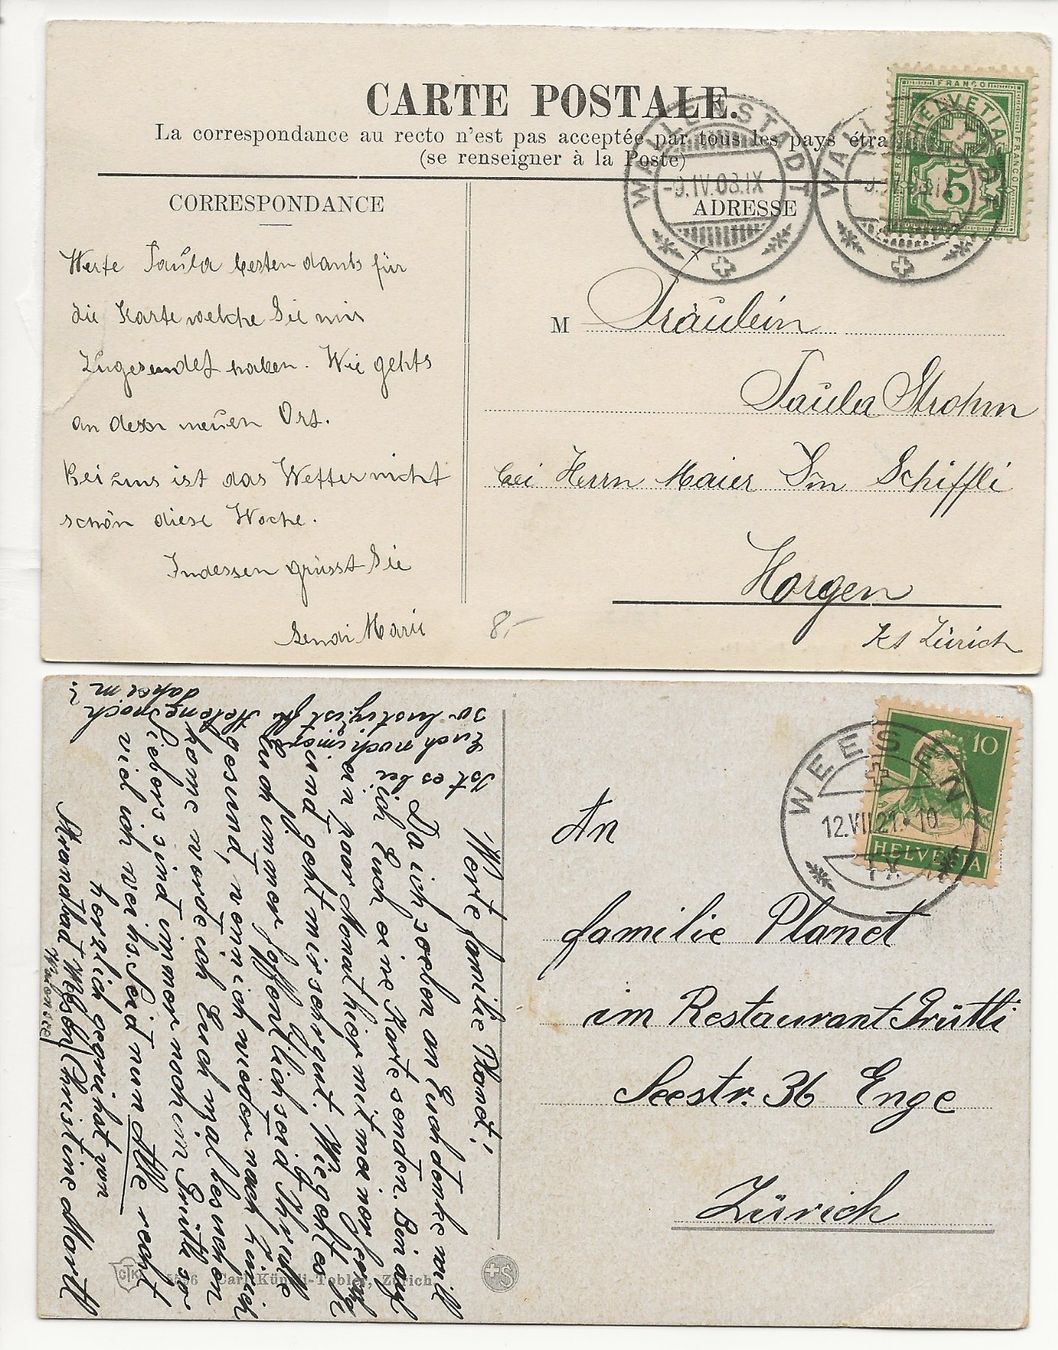 CARTE POSTALE.
La correspondance au recto n'est pas acceptée par tous les pays étra
(se renseigner à la Poste)
CORRESPONDANCE
ADRESSE
WALLENSTADT
-9.IV.03.IX-
WALLENSTADT
FRANCO
HELVETIA
5
Werte Paula besten danks für
die Karte welche Sie mir
Zugesendet haben. Wie gehts
an dem neuen Ort.
Bei uns ist das Wetter nicht
schön diese Woche.
Indessen grüsst Sie
Marie
8.-
M Fräulein
Paula Strohm
bei Herrn Maier Im Schiffli
Horgen
Kt Zürich
WEESEN
12.VII.21.-10
IX
10
HELVETIA
An
familie Planet
im Restaurant Grütli
Seestr. 36 Enge
Zürich
Werte familie Planet,
Da ich soeben an Euch denke will
ich Euch eine Karte senden. Bin auf
ein paar Monat hier mit meiner
und geht mir sehr gut. Wie geht es
Euch immer hoffentlich seid Ihr alle
gesund, wenn ich wieder nach Zürich
kome werde ich Euch mal besuchen
Liebers sind immer noch im Grütli so
viel ich weiss. Seid nun alle recht
herzlich gegrüsst von
Christine Martl
Strandbad Weesen
Ist es bei
Euch noch immer
so lustig ist
noch
daheim?
CTK
Carl Künzli-Tobler, Zürich
S